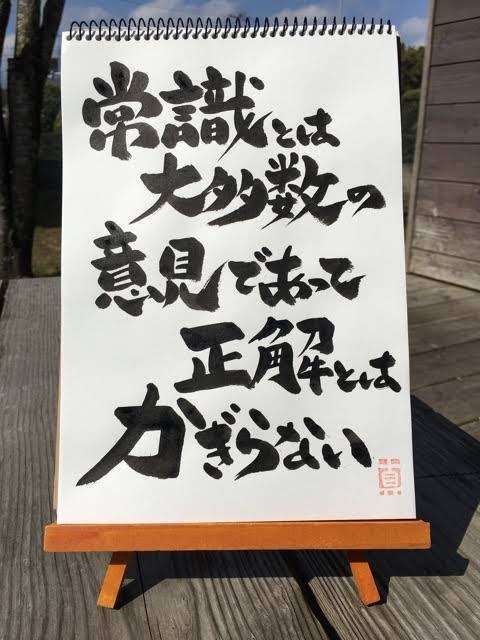 常識とは
大多数の
意見であって
正解とは
かぎらない